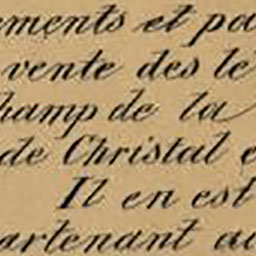 ements et pa
vente des le
hamp de la
de Christal e
Il en est
artenant au